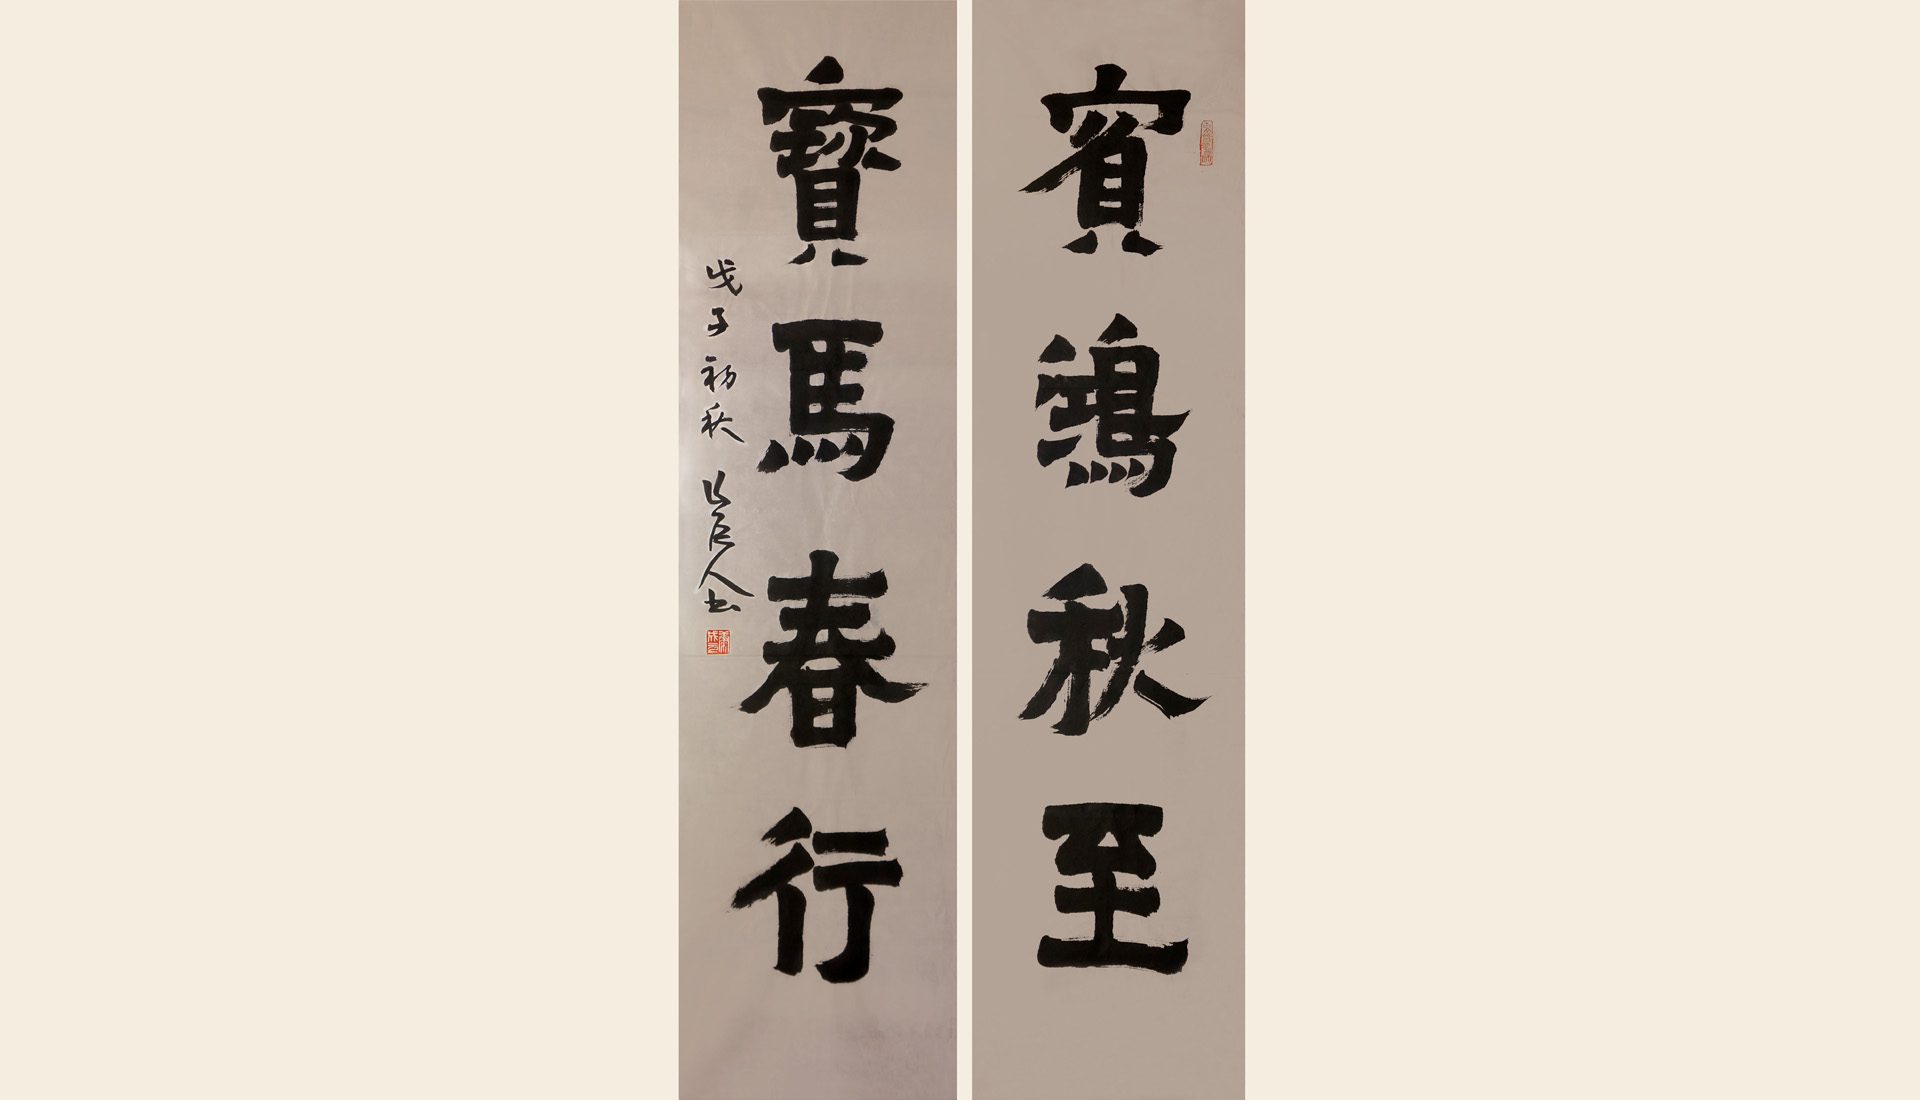 賓鴻秋至
寶馬春行
戊子初秋
人书